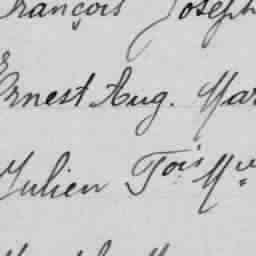 François Joseph
Ernest Aug. Mar
Julien Fois Mie